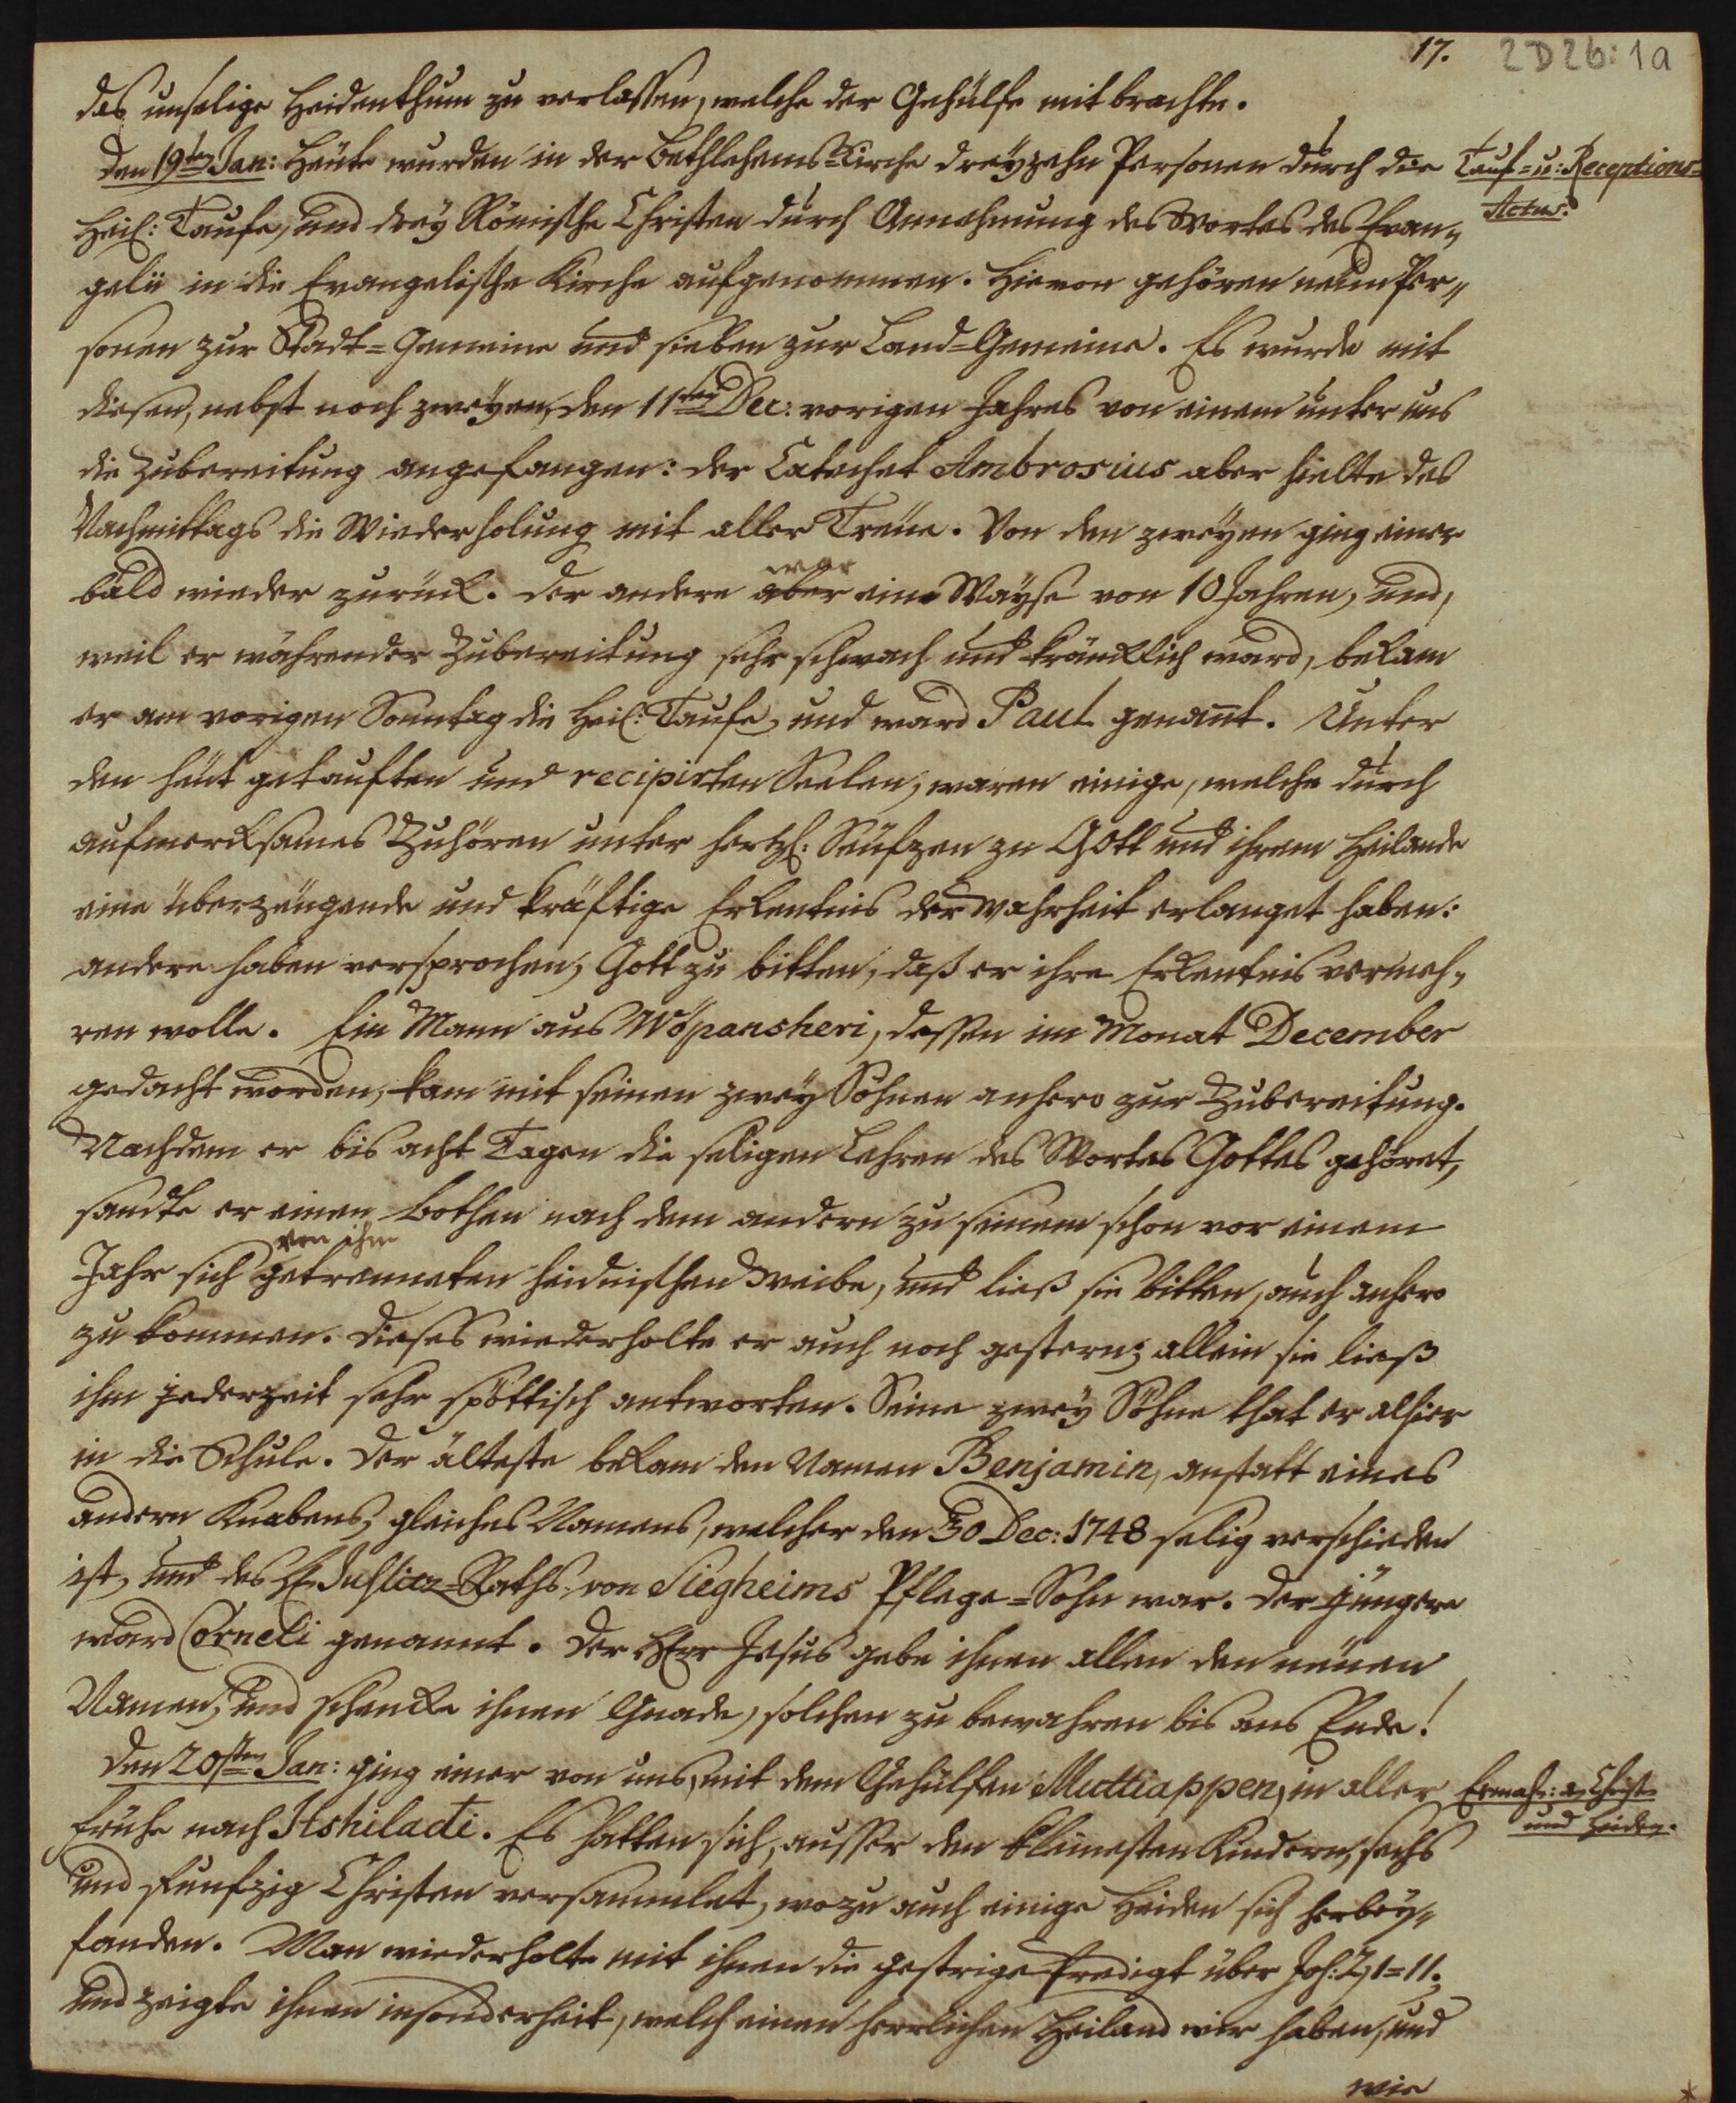 17. 2D2b:1a
das unselige Heidenthum zu verlassen, welche der Gehülfe mitbrachte.
den 19ten Jan: Heute wurden in der Bethlehems-Kirche dreyzehn Personen durch die
Tauf= u: Receptions=
Actus.
Heil: Taufe, und drey Römische Christen durch Annehmung des Wortes des Evan„
gelii in die Evangelische Kirche aufgenommen. Hievon gehören neun Per„
sonen zur Stadt=Gemeine und sieben zur Land=Gemeine. Es wurde mit
diesen, nebst noch zweyen, den 11ten Dec: vorigen Jahres von einem unter uns
die Zubereitung angefangen: der Catechet Ambrosius aber hielte des
Nachmittags die Wiederholung mit aller Treue. Von den zweyen ging einer
bald wieder zurück. der andere aber war eine Wayse von 10 Jahren, und,
weil er währender Zubereitung sehr schwach und kräncklich ward, bekam
er am vorigen Sonntag die Heil: Taufe, und ward Paul genannt. Unter
den heut getauften und recipirten Seelen, waren einige, welche durch
aufmercksames Zuhören unter hertzl: Seufzen zu Gott und ihrem Heilande
eine überzeugende und kräftige Erkentnis der Wahrheit erlanget haben:
andere haben versprochen, Gott zu bitten, daß er ihre Erkentnis vermeh„
ren wolle. Ein Mann aus Wöpansheri, dessen im Monat December
gedacht worden, kam mit seinen zwey Söhnen anhero zur Zubereitung.
Nachdem er bis acht Tagen die seligen Lehren des Wortes Gottes gehöret,
sandte er einen Bothen nach dem andern zu seinem schon vor einem
Jahr sich von ihm getrenneten heidnischen Weibe, und ließ sie bitten, auch anhero
zu kommen. Dieses wiederholte er auch noch gestern; allein sie ließ
ihm jederzeit sehr spöttisch antworten. Seine zwey Söhne that er alhier
in die Schule. Der älteste bekam den Namen Benjamin, anstatt eines
andern Knabens, gleiches Namens, welcher den 30 Dec: 1748 selig verschieden
ist, und des H. Justiz=Raths von Siegheims Pflege=Sohn war. Der jüngere
ward Corneli genannt. Der HErr Jesus gebe ihnen allen den neuen
Namen, und schencke ihnen Gnade, solchen zu bewahren bis ans Ende!
den 20sten Jan: ging einer von uns, mit dem Gehülfen Muttiappen, in aller
Ermahn: a. Christen
und Heiden.
Frühe nach Itshiladi. Es hatten sich, ausser den kleinesten Kindern, sechs
und funfzig Christen versammlet, wozu auch einige Heiden sich herbey„
fanden. Man wiederholte mit ihnen die gestrige Predigt über Joh: 2, 1=11.
und zeigte ihnen insonderheit, welch einen herrlichen Heiland wir haben, und
wie